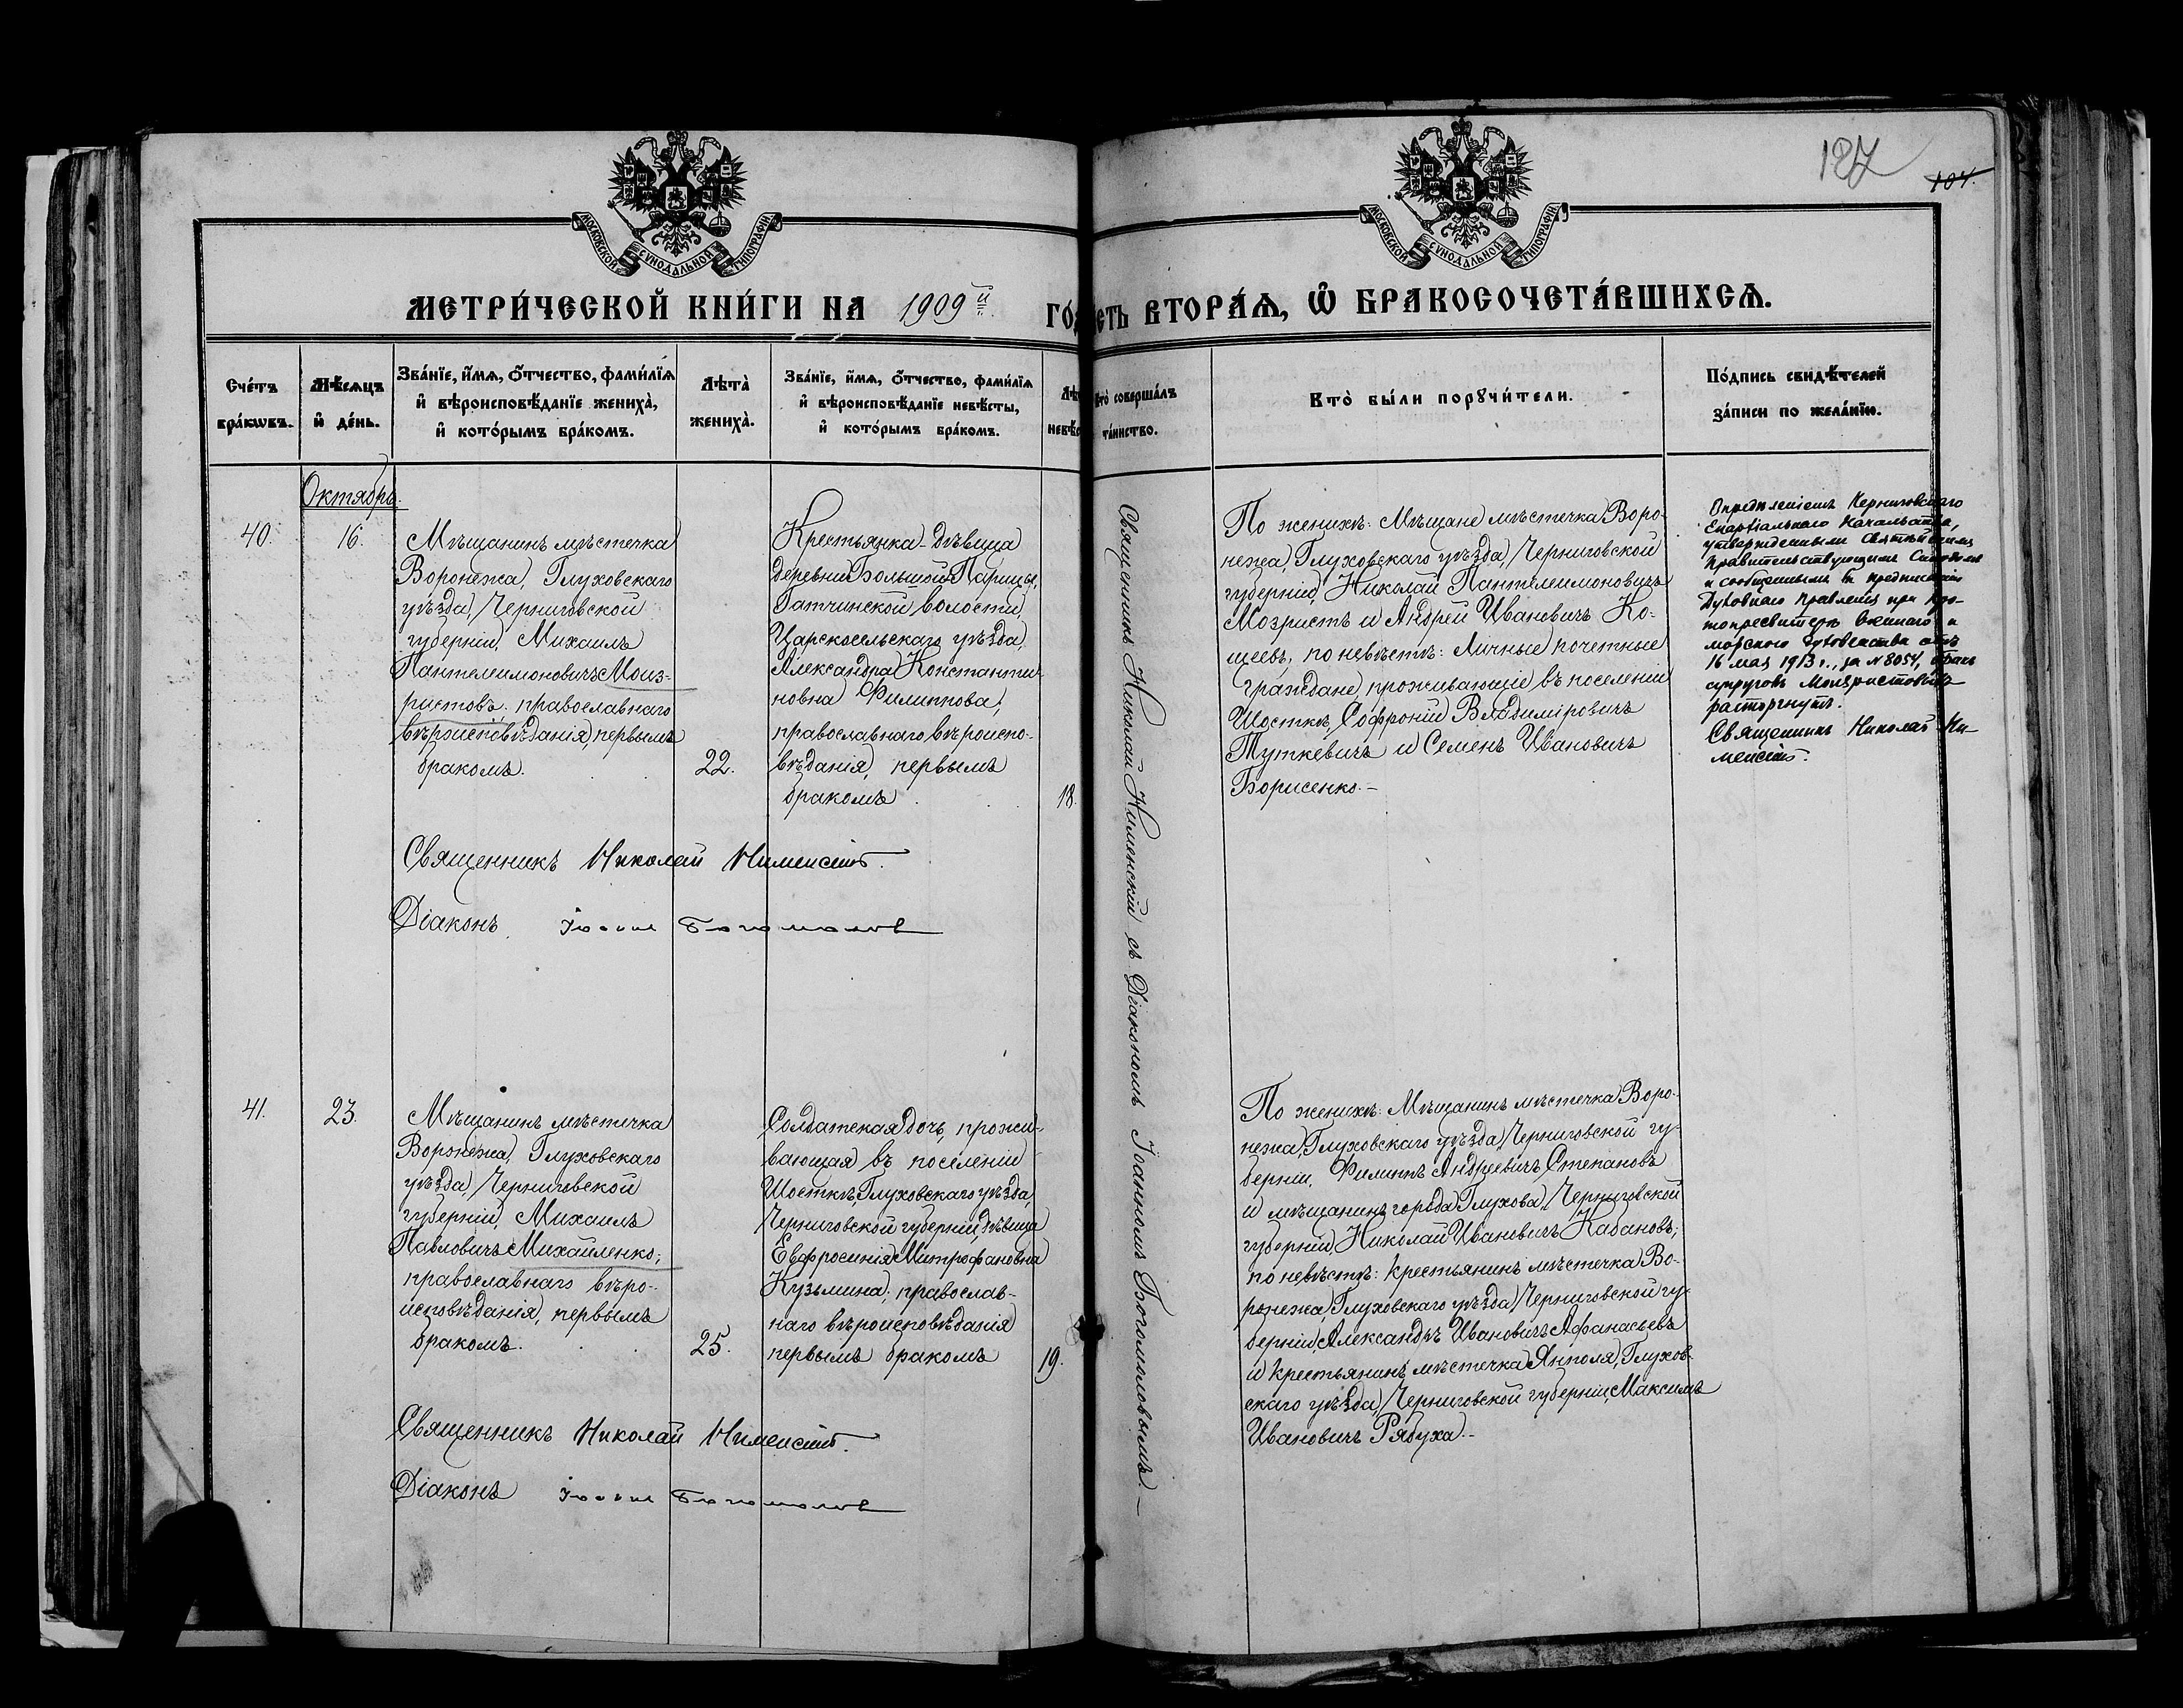 187
104.
МОСКОВСКОЙ СѴНОДАЛЬНОЙ ТИПОГРАФІИ
МОСКОВСКОЙ СѴНОДАЛЬНОЙ ТИПОГРАФІИ
МЕТРИ́ЧЕСКОЙ КНИ́ГИ НА 1909й ГО́
СТЬ ВТОРА́Ѧ, Ѽ БРАКОСОЧЕТА́ВШИХСѦ.
Сче́тъ
бра́кѡвъ.
Мѣ́сяцъ
и҆ де́нь.
Зва́нїе, и҆́мѧ, ѻ҆́тчество, фами́лїѧ
и҆ вѣроисповѣ́данїе жениха̀,
и҆ кото́рымъ бра́комъ.
Лѣта̀
жениха̀.
Зва́нїе, и҆́мѧ, ѻ҆́тчество, фами́лїѧ
и҆ вѣроисповѣ́данїе невѣ́сты,
и҆ кото́рымъ бра́комъ.
Лѣ
невѣ́с
Кто̀ соверша́лъ
та́инство.
Кто̀ бы́ли порꙋчи́тели.
По́дпись свидѣ́телей
за́писи по жела́нїю.
Октябрь.
40.
16.
Мѣщанинъ мѣстечка
Воронежа, Глуховскаго
уѣзда, Черниговской
губерніи, Михаилъ
Пантелеимоновичъ Моиз-
ристовъ; православнаго
вѣроисповѣданія, первымъ
бракомъ.
22.
Крестьянка-дѣвица
деревни Большой Парицы,
Гатчинской волости,
Царскосельскаго уѣзда,
Александра Константи-
новна Филиппова;
православнаго вѣроиспо-
вѣданія, первымъ
бракомъ
18.
Священникъ Николай Нименскій съ Діакономъ Іоанномъ Богомоловымъ.—
По женихѣ: Мѣщане мѣстечка Воро-
нежа, Глуховскаго уѣзда, Черниговской
губерніи, Николай Пантелеимоновичъ
Мозристъ и Андрей Ивановичъ Ко-
щеевъ, по невѣстѣ: Личные почетные
граждане, проживающіе въ поселеніи
Шосткѣ, Софроній Владиміровичъ
Туткевичъ и Семенъ Ивановичъ
Борисенко.—
Опредѣленіемъ Черниговскаго
Епархіальнаго Начальства,
утвержденнымъ Святѣйшимъ
Правительствующимъ Синодомъ
и сообщеннымъ въ предписаніи
Духовнаго Правленія при Про-
топресвитерѣ военнаго и
морского духовенства отъ
16 мая 1913 г., за № 8054, бракъ
супруговъ Моизристовыхъ
расторгнутъ.
Священникъ Николай Ни-
менскій.
Священникъ Николай Нименскій.
Діаконъ Іоаннъ Богомоловъ
41.
23.
Мѣщанинъ мѣстечка
Воронежа, Глуховскаго
уѣзда, Черниговской
губерніи, Михаилъ
Павловичъ Михайленко;
православнаго вѣро-
исповѣданія, первымъ
бракомъ.
25.
Солдатская дочь, прожи-
вающая въ поселеніи
Шосткѣ, Глуховскаго уѣзда,
Черниговской губерніи, дѣвица
Евфросинія Митрофановна
Кузьмина; православ-
наго вѣроисповѣданія
первымъ бракомъ
19.
По женихѣ: Мѣщанинъ мѣстечка Воро-
нежа, Глуховскаго уѣзда, Черниговской гу-
берніи, Филиппъ Андреевичъ Степановъ
и мѣщанинъ города Глухова, Черниговской
губерніи, Николай Ивановичъ Кабановъ;
по невѣстѣ: крестьянинъ мѣстечка Во-
ронежа, Глуховскаго уѣзда, Черниговской гу-
берніи, Александръ Ивановичъ Афанасьевъ
и крестьянинъ мѣстечка Янполя, Глухов-
скаго уѣзда, Черниговской губерніи, Максимъ
Ивановичъ Рябуха.-
Священникъ Николай Нименскій.
Діаконъ Іоаннъ Богомоловъ